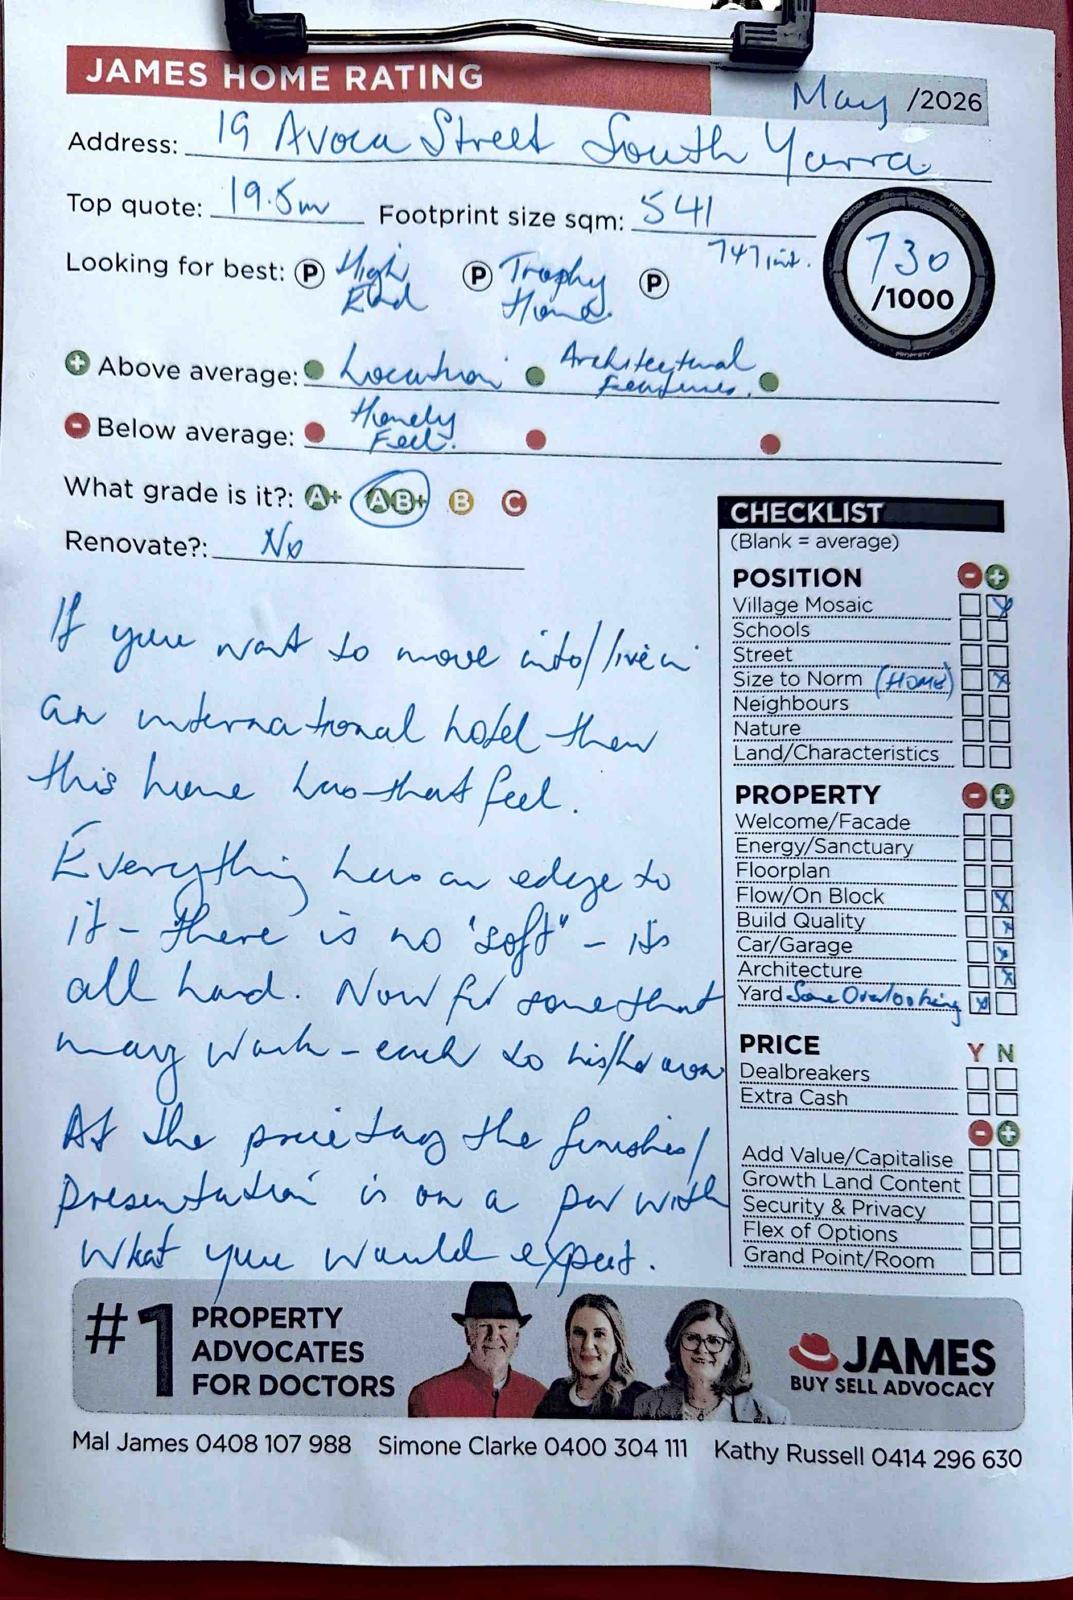 JAMES HOME RATING
May /2026
Address: 19 Avoca Street South Yarra
Top quote: 19.5m Footprint size sqm: 541
747 int.
730
/1000
Looking for best: P High End P Trophy Home P
Above average: Location Architectural Features.
Below average: Homely Feel.
What grade is it?: A+ AB+ B C
Renovate?: No
If your want to move into/live in
an international hotel then
this home has that feel.
Everything has an edge to
it - there is no "soft" - its
all hard. Now for some that
may work - each to his/her own
At the price tag the finishes/
presentation is on a par with
what you would expect.
CHECKLIST
(Blank = average)
POSITION - +
Village Mosaic
Schools
Street
Size to Norm (HOME)
Neighbours
Nature
Land/Characteristics
PROPERTY - +
Welcome/Facade
Energy/Sanctuary
Floorplan
Flow/On Block
Build Quality
Car/Garage
Architecture
Yard Some Overlooking
PRICE Y N
Dealbreakers
Extra Cash
- +
Add Value/Capitalise
Growth Land Content
Security & Privacy
Flex of Options
Grand Point/Room
#1 PROPERTY
ADVOCATES
FOR DOCTORS
JAMES
BUY SELL ADVOCACY
Mal James 0408 107 988 Simone Clarke 0400 304 111 Kathy Russell 0414 296 630